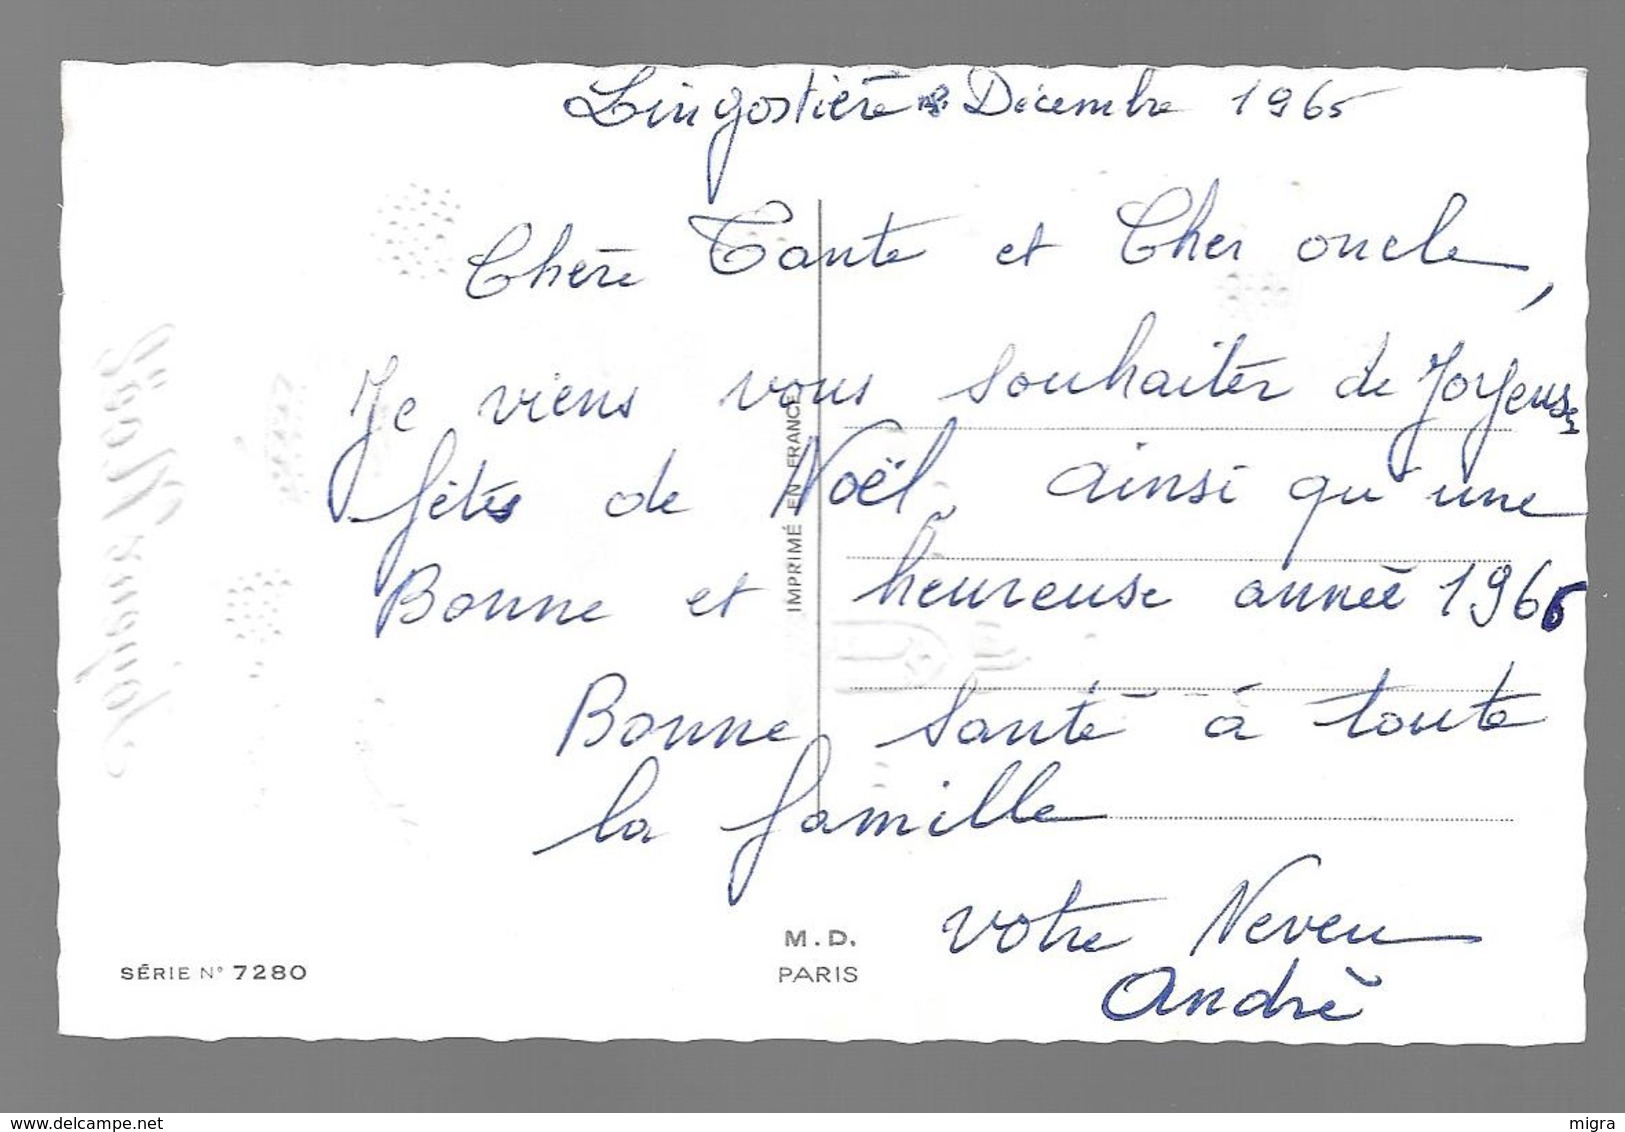 Lingostière Décembre 1965
Chère Tante et Cher oncle,
Je viens vous souhaiter de Joyeuse
fêtes de Noël, ainsi qu'une
Bonne et heureuse année 1966
Bonne santé à toute
la famille
votre Neveu
André
IMPRIMÉ EN FRANCE
M.D.
PARIS
SÉRIE N° 7280
Joyeux Noël
delcampe.net
migra